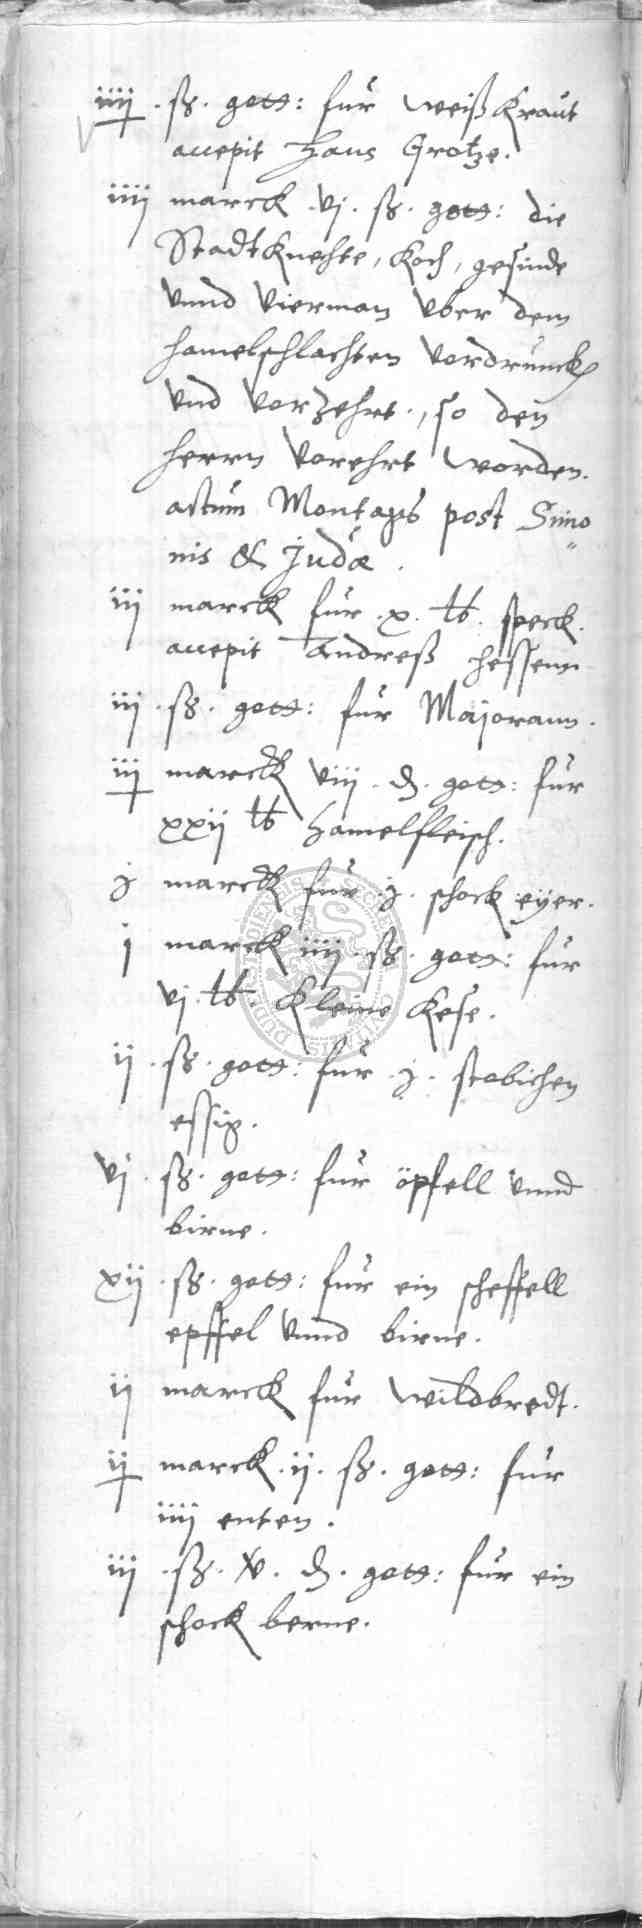 iiij . ß. gott: fur weißkraut
accepit Hans Grotze.
iiij marck .vj. ß. gott: die
Stadtknechte, koch, gesinde
vnnd vierman vber dem
hamelschlachten vordrunck
vnd vorzehrt., so den
herrn vorehrt worden.
actum Montags post Simo
nis & Judæ.
iij marck fur .x. lb. speck.
accepit Andreß hessenn
iij . ß. gott: fur Majorann.
iij marck viij . d. gott: fur
xxij lb hamelfleisch.
j marck fur .j. schock eyer.
j marck iiij . ß. gott: fur
vj. lb kleine kese.
ij . ß. gott: fur .j. stobichen
essig.
vj . ß. gott: fur öpfell vnnd
birne.
xij . ß. gott: fur ein scheffell
epffel vnnd birne.
ij marck fur wildbredt.
ij marck .ij. ß. gott: fur
iiij enten.
iij . ß. v. d. gott: fur ein
schock berne.